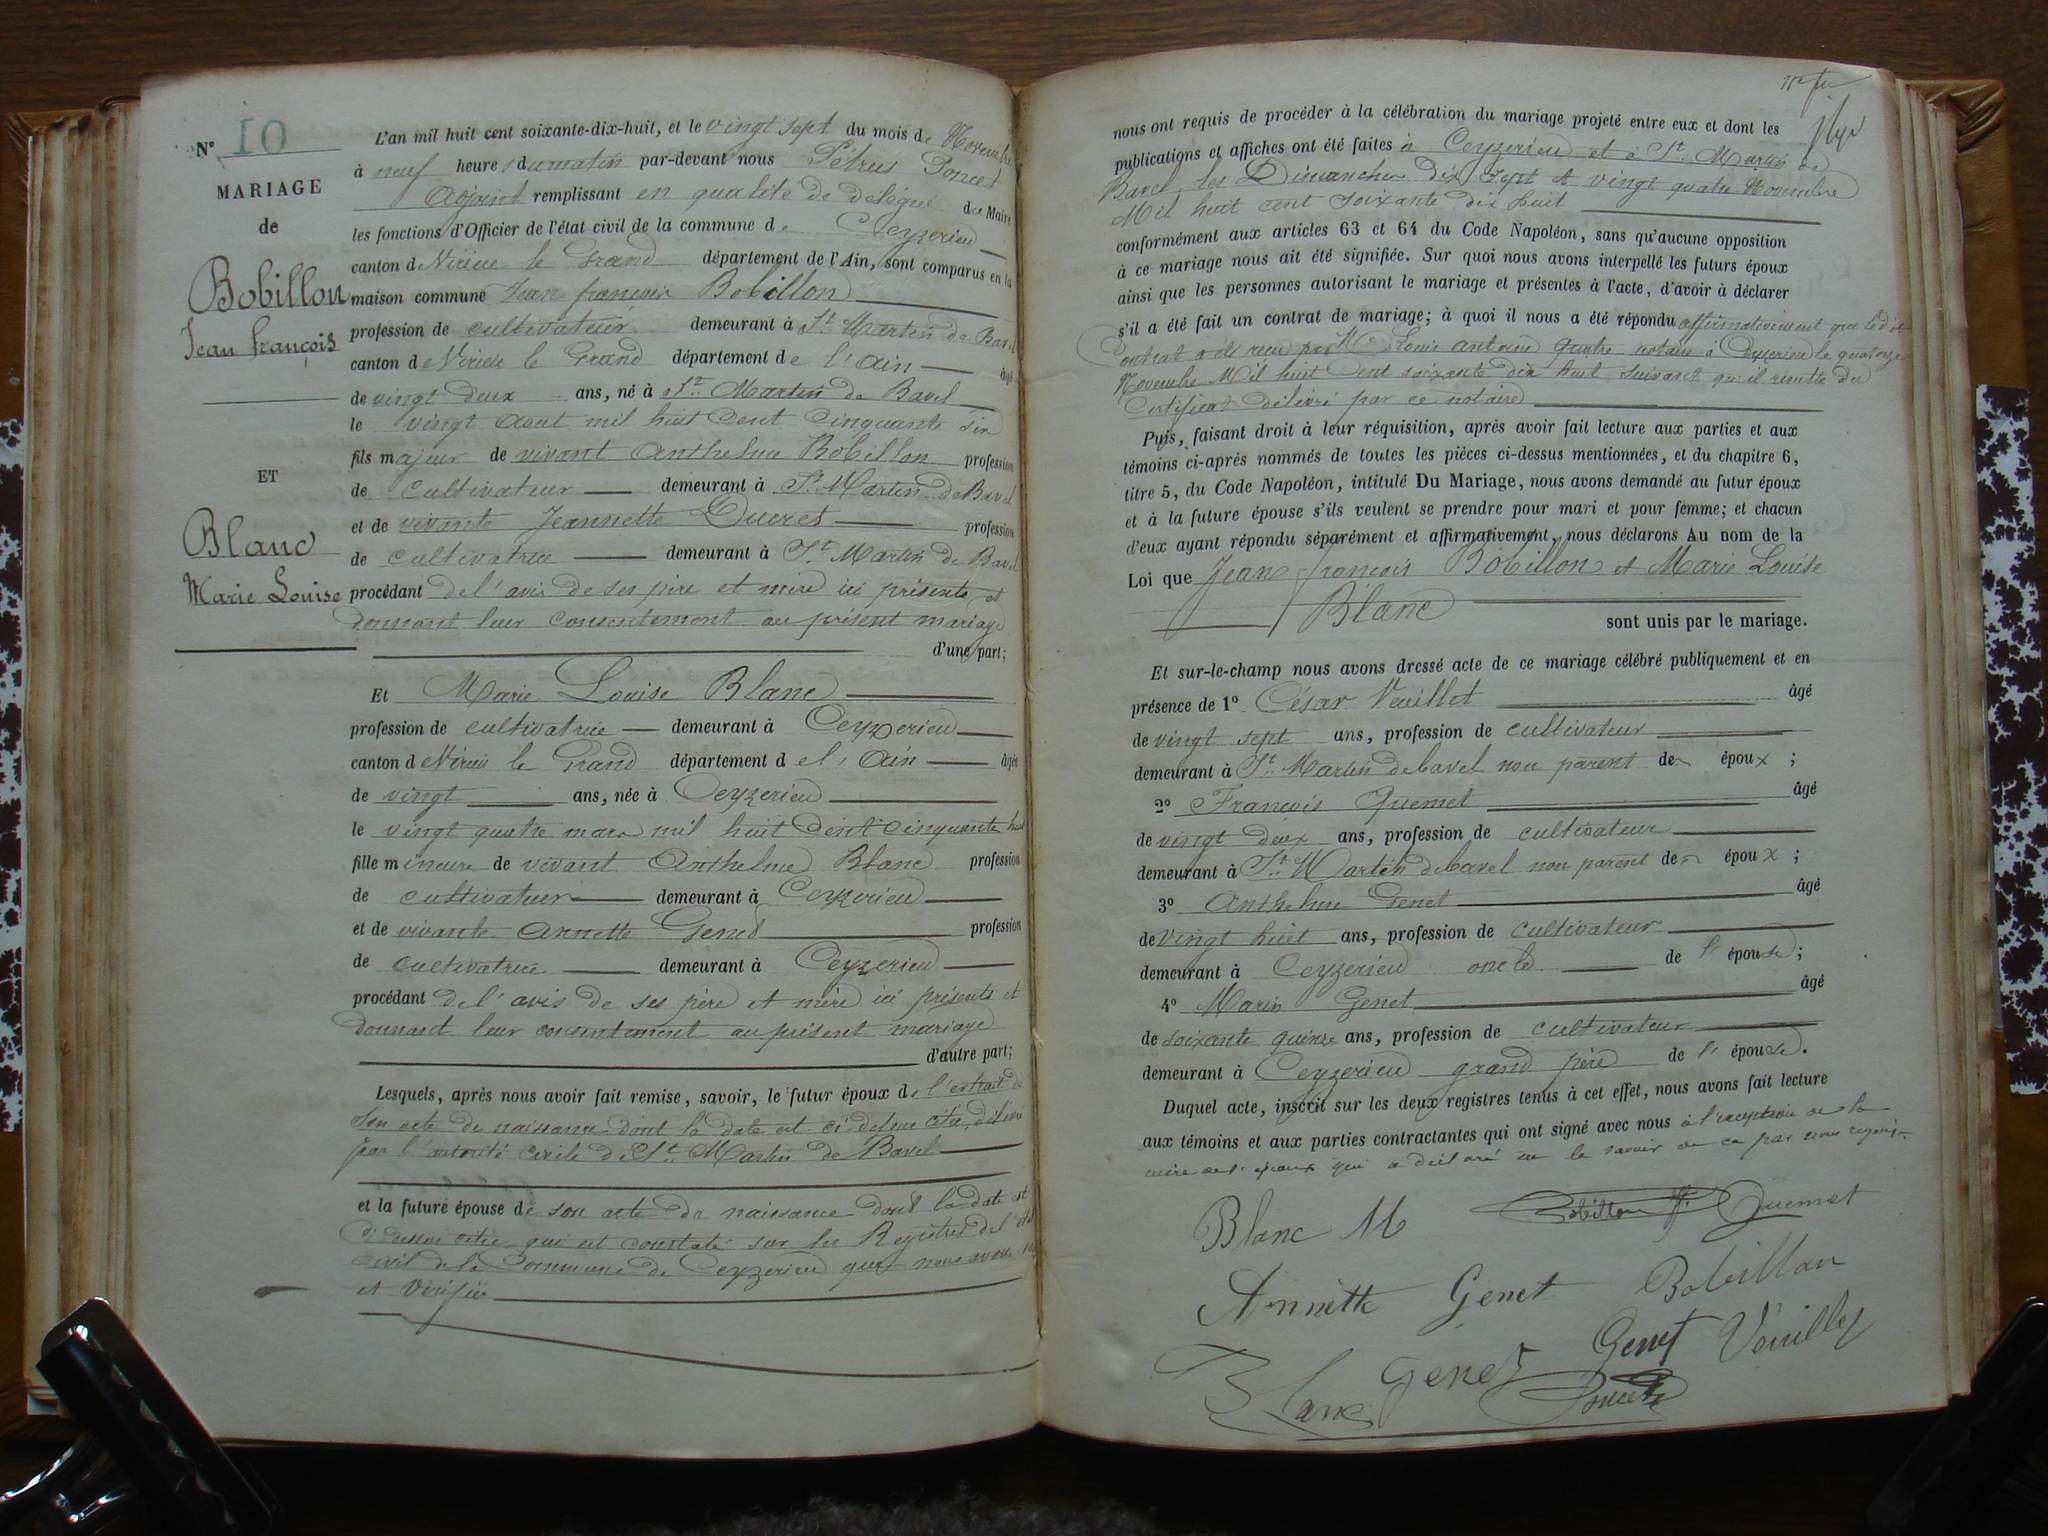 N° 10
MARIAGE
de
Bobillon
Jean françois
ET
Blanc
Marie Louise
L'an mil huit cent soixante-dix-huit, et le vingt sept du mois de Novembre
à neuf heures du matin par-devant nous Pétrus Poncet
Adjoint remplissant en qualité de délégué du Maire
les fonctions d'Officier de l'état civil de la commune de Ceyzerieu
canton d Virieu le Grand département de l'Ain, sont comparus en la
maison commune Jean françois Bobillon
profession de cultivateur demeurant à St Martin de Bavel
canton de Virieu le Grand département de l'ain âgé
de vingt deux ans, né à St Martin de Bavel
le vingt aout mil huit cent cinquante six
fils majeur de vivant Anthelme Bobillon profession
de cultivateur demeurant à St Martin de Bavel
et de vivante Jeannette Ducret profession
de cultivatrice demeurant à St Martin de Bavel
procédant de l'avis de ses père et mère ici présents et
donnant leur consentement au présent mariage
d'une part;
Et Marie Louise Blanc
profession de cultivatrice demeurant à Ceyzerieu
canton d Virieu le Grand département d el'Ain âgée
de vingt ans, née à Ceyzerieu
le vingt quatre mars mil huit cent cinquante huit
fille mineure de vivant Anthelme Blanc profession
de cultivateur demeurant à Ceyzerieu
et de vivante annette Genet profession
de cultivatrice demeurant à Ceyzerieu
procédant de l'avis de ses père et mère ici présents et
donnant leur consentement au présent mariage
d'autre part;
Lesquels, après nous avoir fait remise, savoir, le futur époux de l'extrait de
son acte de naissance dont la date est ci-dessus citée, délivré
par l'autorité civile de St Martin de Bavel
et la future épouse de son acte de naissance dont la date est
ci dessus citée qui est constaté sur les Registres de l'état
civil de la Commune de Ceyzerieu que nous avons vu
et vérifié
nous ont requis de procéder à la célébration du mariage projeté entre eux et dont les
publications et affiches ont été faites à Ceyzerieu et à St Martin de
Bavel, les Dimanches dix sept et vingt quatre Novembre
Mil huit cent soixante dix huit
conformément aux articles 63 et 64 du Code Napoléon, sans qu'aucune opposition
à ce mariage nous ait été signifiée. Sur quoi nous avons interpellé les futurs époux
ainsi que les personnes autorisant le mariage et présentes à l'acte, d'avoir à déclarer
s'il a été fait un contrat de mariage; à quoi il nous a été répondu affirmativement que ledit
Contrat a été reçu par Me Louis antoine notaire à Ceyzerieu le quatorze
Novembre Mil huit cent soixante dix huit, suivant qu'il résulte du
Certificat délivré par ce notaire
Puis, faisant droit à leur réquisition, après avoir fait lecture aux parties et aux
témoins ci-après nommés de toutes les pièces ci-dessus mentionnées, et du chapitre 6,
titre 5, du Code Napoléon, intitulé Du Mariage, nous avons demandé au futur époux
et à la future épouse s'ils veulent se prendre pour mari et pour femme; et chacun
d'eux ayant répondu séparément et affirmativement, nous déclarons Au nom de la
Loi que Jean françois Bobillon et Marie Louise
Blanc
sont unis par le mariage.
Et sur-le-champ nous avons dressé acte de ce mariage célébré publiquement et en
présence de 1° César Veuillet âgé
de vingt sept ans, profession de cultivateur
demeurant à St Martin debavel non parent des époux ;
2° François Quemet âgé
de vingt deux ans, profession de cultivateur
demeurant à St Martin debavel non parent des époux ;
3° Anthelme Genet âgé
de vingt huit ans, profession de cultivateur
demeurant à Ceyzerieu oncle de l'épouse ;
4° Marin Genet âgé
de soixante quinze ans, profession de cultivateur
demeurant à Ceyzerieu grand père de l'épouse.
Duquel acte, inscrit sur les deux registres tenus à cet effet, nous avons fait lecture
aux témoins et aux parties contractantes qui ont signé avec nous à l'exception de la
mère de l'époux qui a déclaré ne le savoir de ce par nous requis
Blanc M Bobillon Quemet
Annette Genet Bobillon
Blanc Genet Genet Veuillet
Poncet